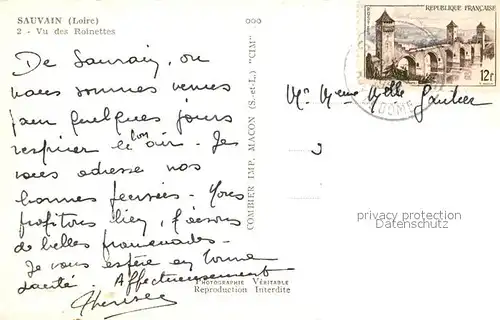 SAUVAIN (Loire)
2 - Vu des Roinettes
De Sauvain, où
nous sommes venus
pour quelques jours
respirer le bon air. Je
vous adresse nos
bonnes pensées. Nous
profitons bien, faisons
de belles promenades.
Je vous espère en bonne
santé. Affectueusement
Thérèse
COMBIER IMP. MACON (S.-et-L.) "CIM"
PHOTOGRAPHIE VÉRITABLE
Reproduction Interdite
REPUBLIQUE FRANÇAISE
12f
DOME
Mr Mme Melle
privacy protection
watermark